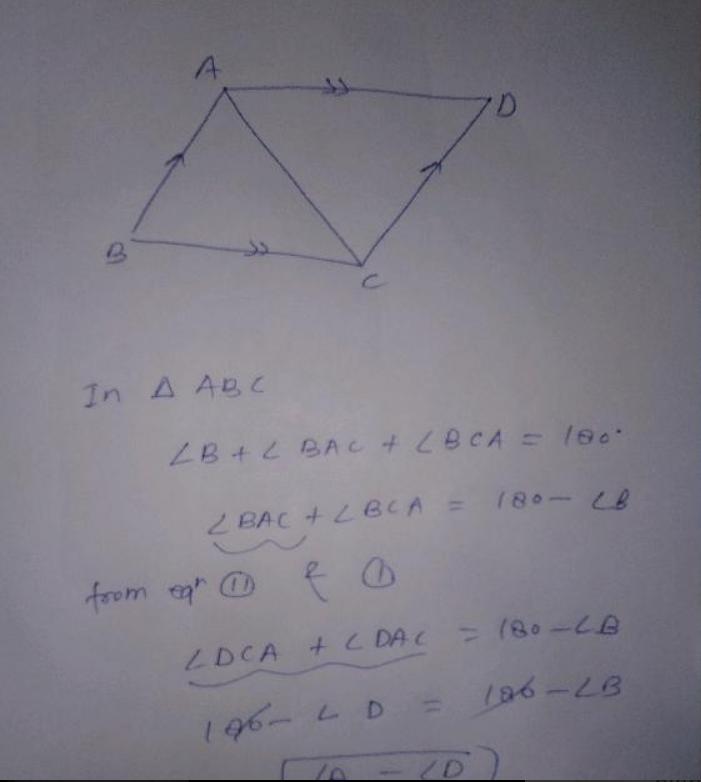 A
D
B
C
In Δ ABC
∠B + ∠BAC + ∠BCA = 180°
∠BAC + ∠BCA = 180 - ∠B
from eqn (11) & (1)
∠DCA + ∠DAC = 180 - ∠B
180 - ∠D = 180 - ∠B
- ∠D